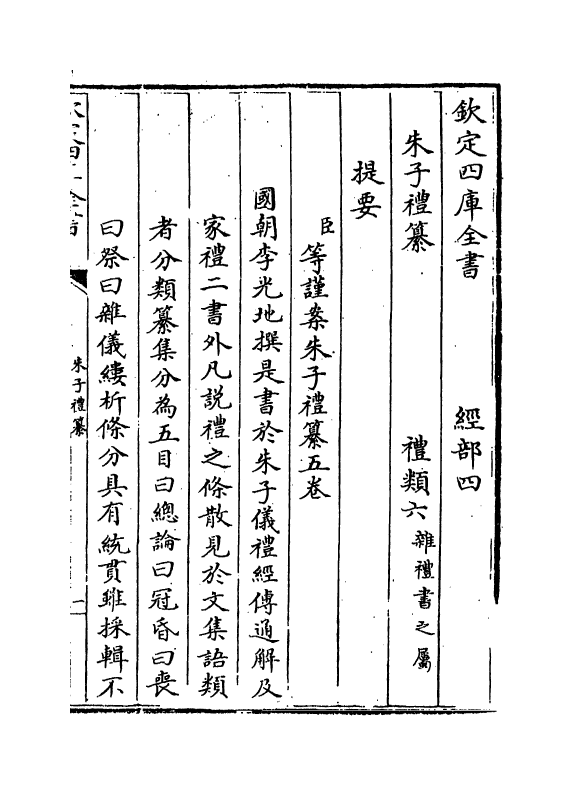 欽定四庫全書　經部四
朱子禮纂　禮類六雜禮書之屬
提要
臣等謹案朱子禮纂五卷
國朝李光地撰是書於朱子儀禮經傳通解及
家禮二書外凡說禮之條散見於文集語類
者分類纂集分為五目曰總論曰冠昏曰喪
曰祭曰雜儀縷析條分具有統貫雖採輯不
朱子禮纂
一